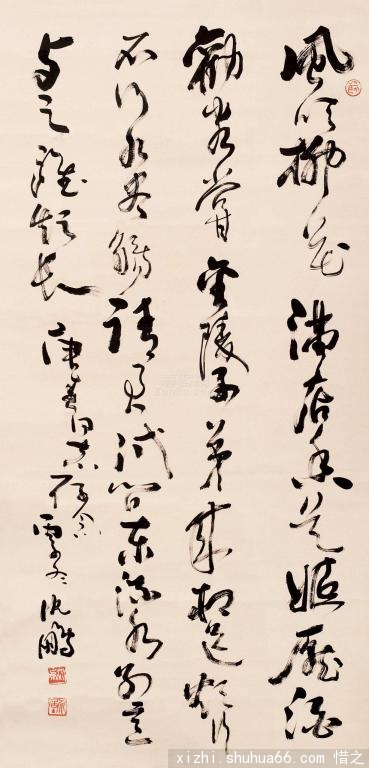 風吹柳花滿店香吳姬壓酒
勸客嘗金陵子弟來相送欲行
不行各盡觴請君試問東流水別意
與之誰短長
同志
沈鵬
xizhi.shuhua66.com 惜之